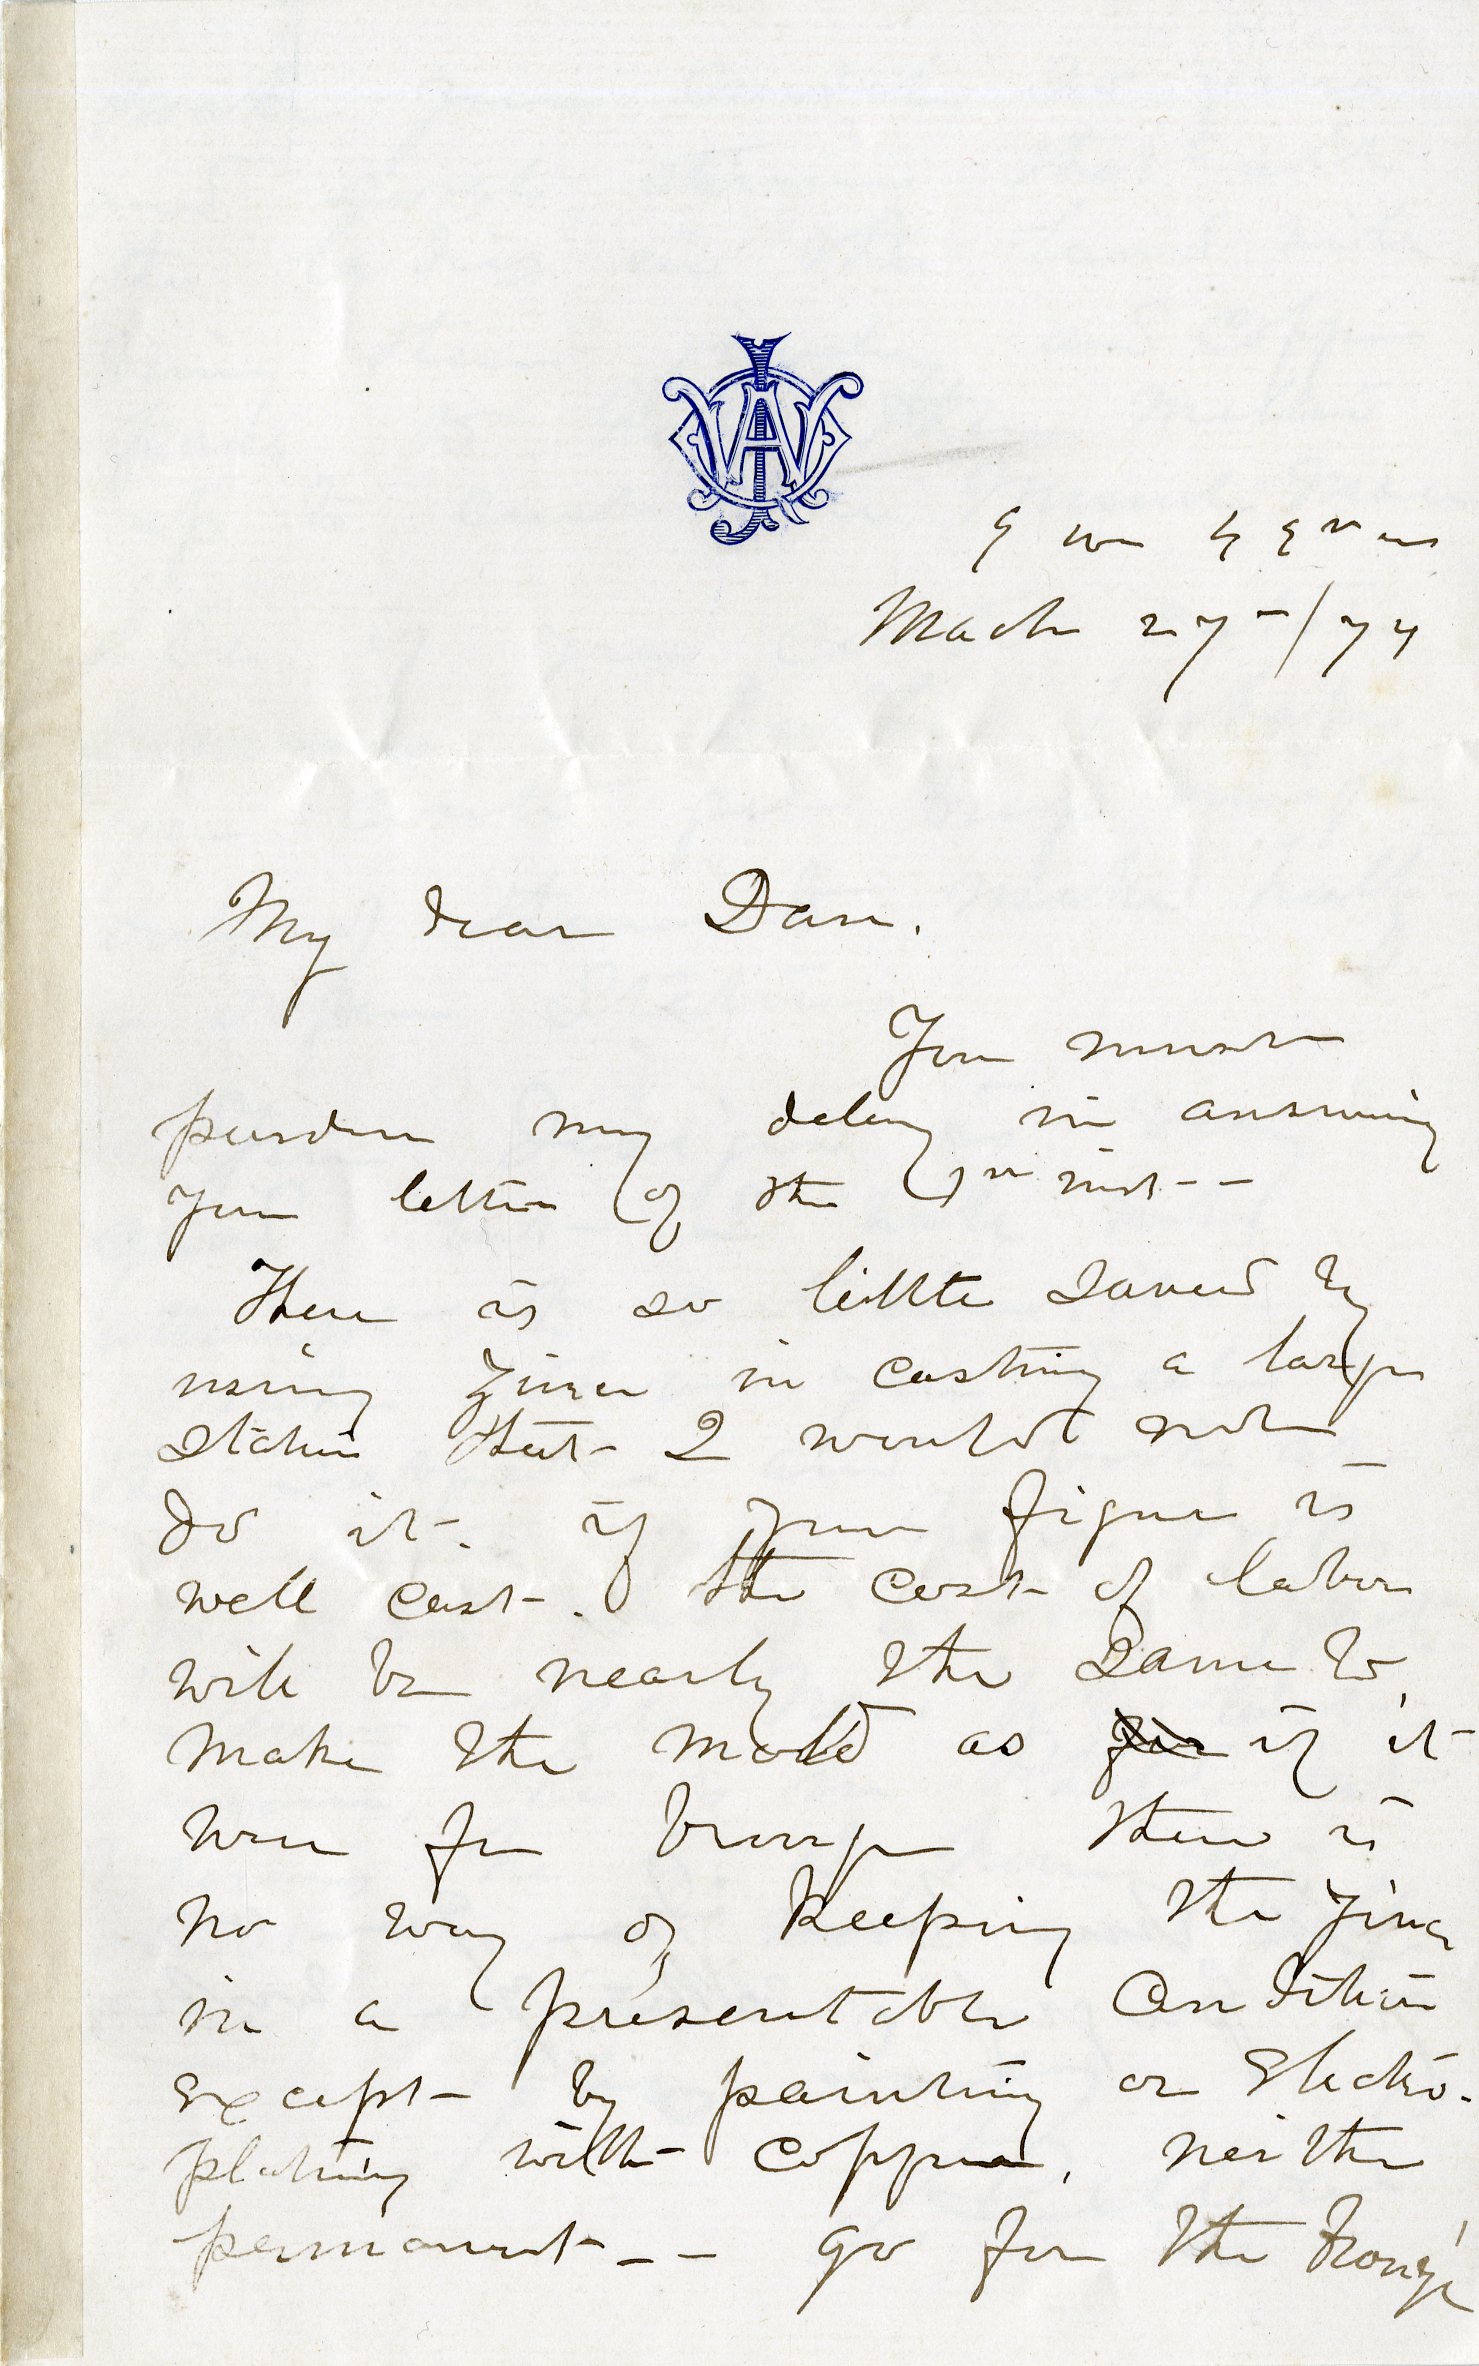 March 27 / 74
My dear Dan.
You must
pardon my delay in answering
your letter of the 1st inst - -
There is so little saved by
using Zinc in casting a large
statue that I would not
do it. if your figure is
well cast. the cost of labor
will be nearly the same to
make the mold as for if it
were for bronze there is
no way of keeping the Zinc
in a presentable condition
except by painting or Electro-
plating with copper, neither
permanent - - go for the bronze